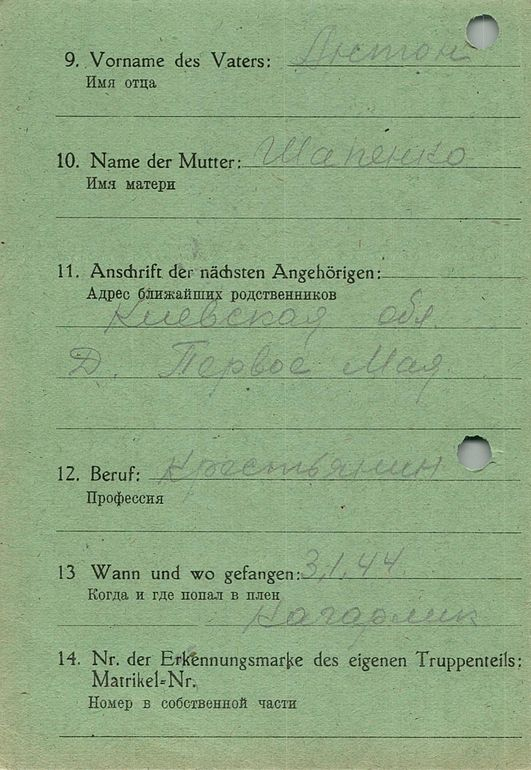 9. Vorname des Vaters: Антон
Имя отца
10. Name der Mutter: Шапенко
Имя матери
11. Anschrift der nächsten Angehörigen:
Адрес ближайших родственников
Киевская обл.
Д. Первое Мая.
12. Beruf: Крестьянин
Профессия
13 Wann und wo gefangen: 3.1.44.
Когда и где попал в плен
Кагарлик
14. Nr. der Erkennungsmarke des eigenen Truppenteils:
Matrikel-Nr.
Номер в собственной части